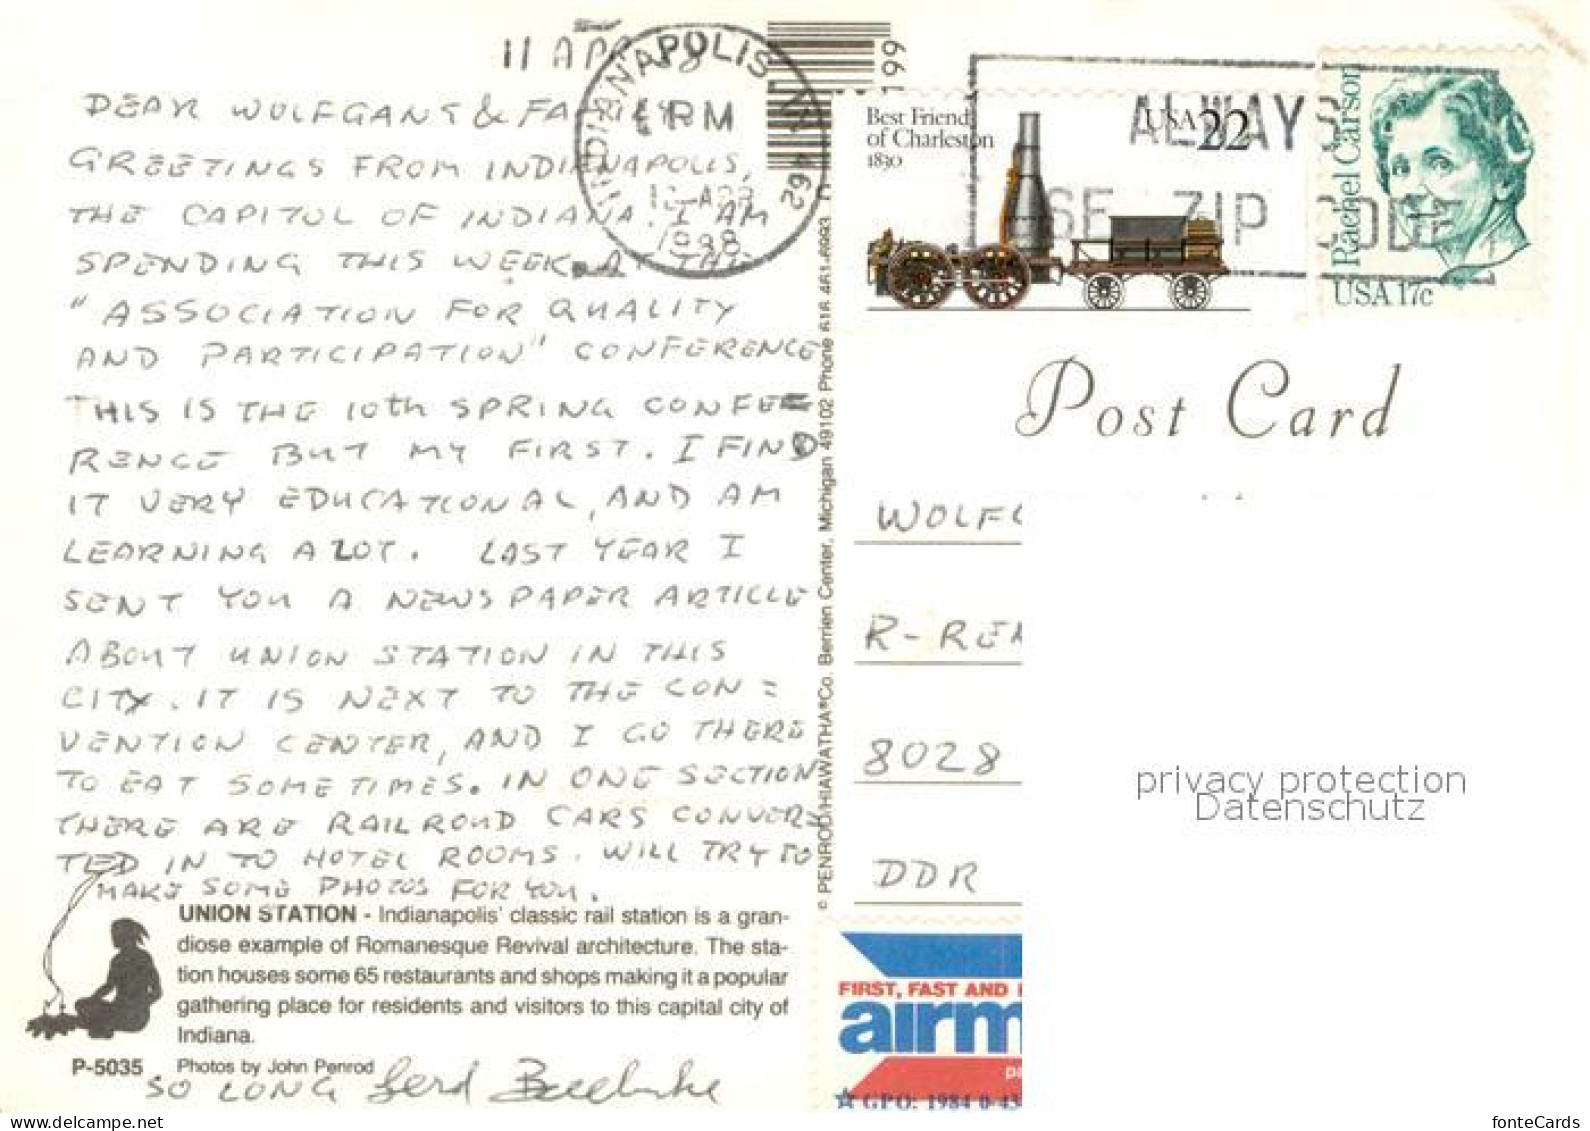 11 APR 88
DEAR WOLFGANG & FAMILY.
GREETINGS FROM INDIANAPOLIS,
THE CAPITOL OF INDIANA. I AM
SPENDING THIS WEEK AT THE
"ASSOCIATION FOR QUALITY
AND PARTICIPATION" CONFERENCE
THIS IS THE 10th SPRING CONFE=
RENCE BUT MY FIRST. I FIND
IT VERY EDUCATIONAL, AND AM
LEARNING A LOT. LAST YEAR I
SENT YOU A NEWSPAPER ARTICLE
ABOUT UNION STATION IN THIS
CITY. IT IS NEXT TO THE CON=
VENTION CENTER, AND I GO THERE
TO EAT SOMETIMES. IN ONE SECTION
THERE ARE RAILROAD CARS CONVER=
TED IN TO HOTEL ROOMS. WILL TRY TO
MAKE SOME PHOTOS FOR YOU.
UNION STATION - Indianapolis' classic rail station is a gran-
diose example of Romanesque Revival architecture. The sta-
tion houses some 65 restaurants and shops making it a popular
gathering place for residents and visitors to this capital city of
Indiana.
P-5035 Photos by John Penrod
SO LONG Gerd
INDIANAPOLIS, IN 462
PM
APR
1988
199
© PENROD/HIAWATHA®Co. Berrien Center, Michigan 49102 Phone 616-461-6993
Best Friend
of Charleston
1830
USA 22
ALWAYS
USE ZIP CODE
Rachel Carson
USA 17c
Post Card
WOLFG
R-REN
8028
DDR
privacy protection
Datenschutz
FIRST, FAST AND
airm
☆ G.P.O. 1984 0-43
fonteCards